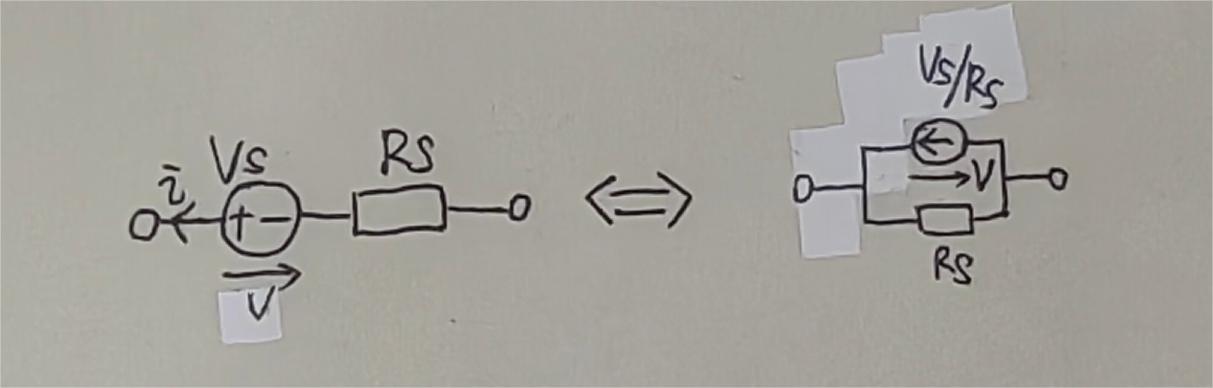 i
Vs
Rs
+ −
V
Vs/Rs
V
Rs